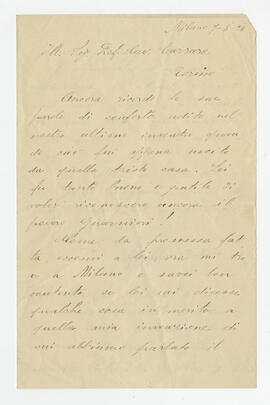 Milano 7-5-28
Ill. Sig. Prof. Cav. Carrara
Torino
Ancora ricordo le sue
parole di conforto udite nel
nostro ultimo incontro quan
do cui fui appena uscito
da quella triste casa. Lei
fu tanto buono e gentile di
voler riconoscere ancora il
povero Guarnieri!
Come da promessa fat
ta eccomi a lei; ora mi tro
vo a Milano e sarei ben
contento se lei mi dicesse
qualche cosa in merito a
quella mia invenzione di
cui abbiamo parlato il